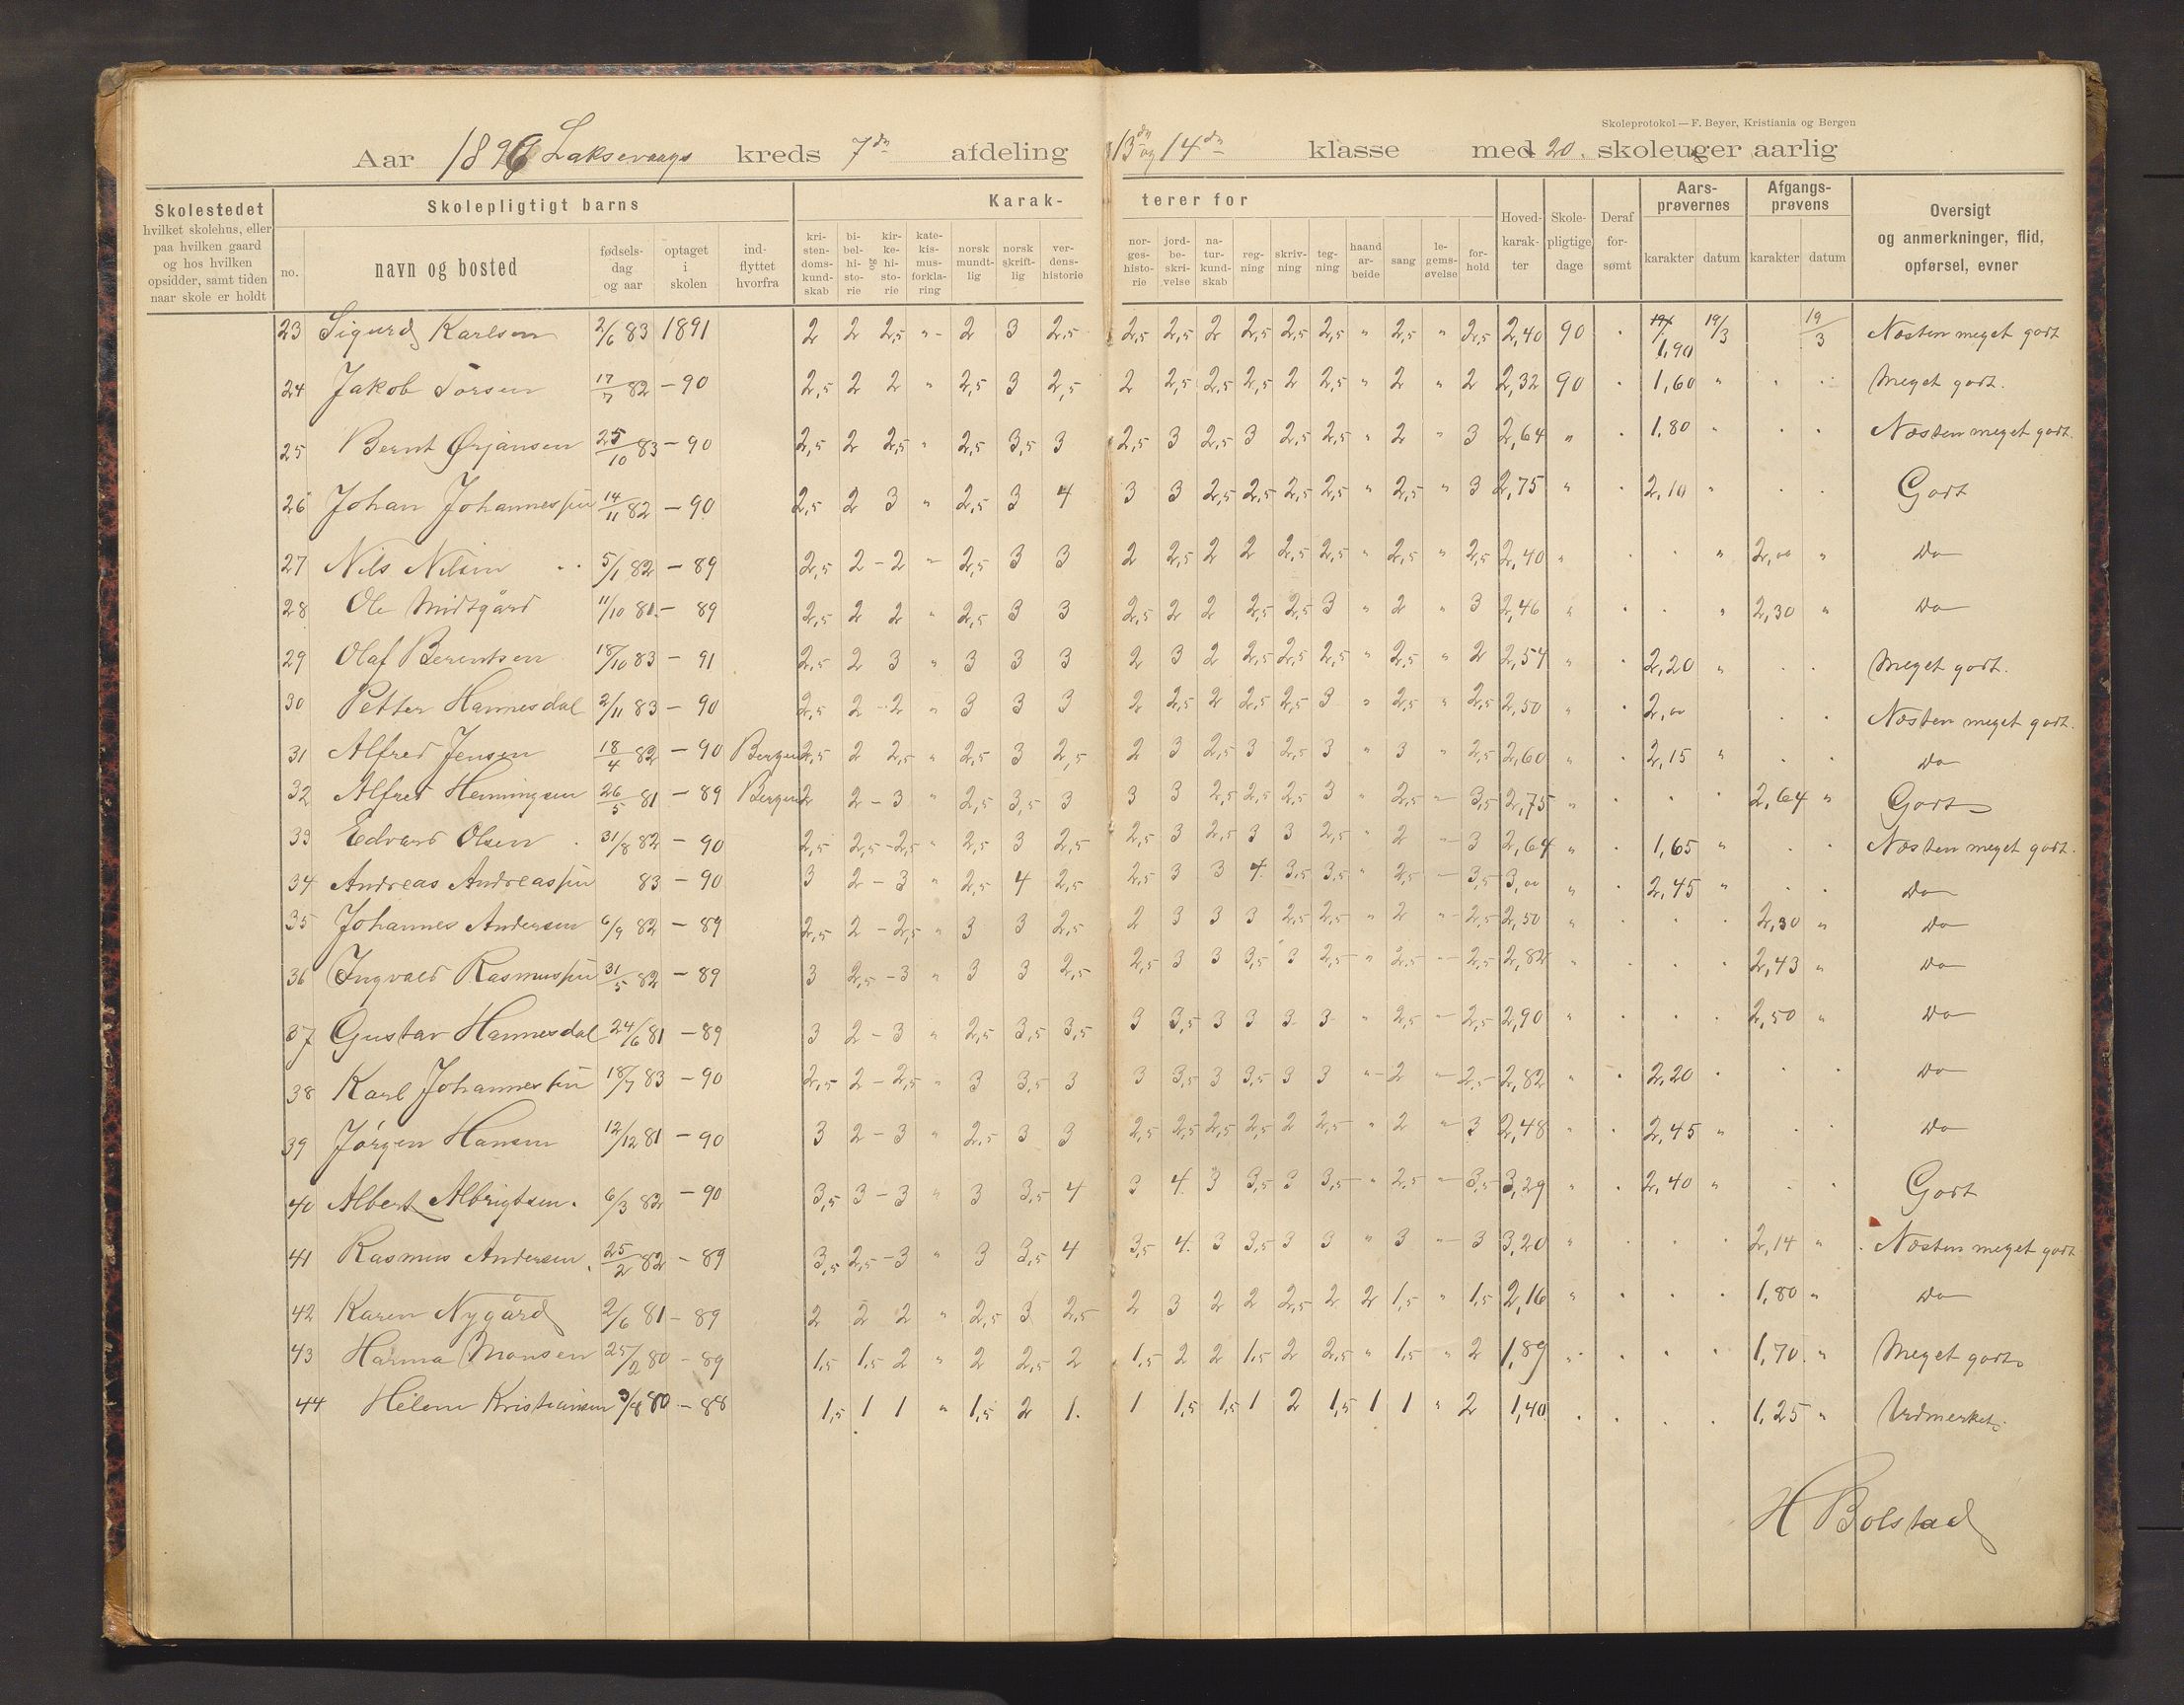 Skoleprotokol — F. Beyer, Kristiania og Bergen
Aar 1896 Laksevaags kreds 7de afdeling 13de og 14de klasse med 20. skoleuger aarlig
Skolestedet hvilket skolehus, eller paa hvilken gaard og hos hvilken opsidder, samt tiden naar skole er holdt
Skolepligtigt barns
no. navn og bosted fødsels-dag og aar optaget i skolen ind-flyttet hvorfra
Karak-terer for
kri-sten-doms-kund-skab bi-bel-hi-sto-rie og kir-ke-hi-sto-rie kate-kis-mus-forkla-ring norsk mundt-lig norsk skrift-lig ver-dens-historie nor-ges-histo-rie jord-be-skri-velse na-tur-kund-skab reg-ning skriv-ning teg-ning haand ar-beide sang le-gems-øvelse for-hold
Hoved-karak-ter Skole-pligtige dage Deraf for-sømt
Aars-prøvernes karakter datum
Afgangs-prøvens karakter datum
Oversigt og anmerkninger, flid, opførsel, evner
23 Sigurd Karlsen 2/6 83 1891 2 2 2,5 " 2 3 2,5 2,5 2,5 2 2,5 2,5 2,5 " 2,5 " 2,5 2,40 90 " 1,90 19/3 19/3 Næsten meget godt
24 Jakob Torsen 17/7 82 - 90 2,5 2 2 " 2,5 3 2,5 2 2,5 2,5 2,5 2 2,5 " 2 " 2 2,32 90 " 1,60 " " " Meget godt.
25 Bernt Ørjansen 25/10 83 - 90 2,5 2 2,5 " 2,5 3,5 3 2,5 3 2,5 3 2,5 2,5 " 2 " 3 2,64 " " 1,80 " " " Næsten meget godt.
26 Johan Johannessen 14/11 82 - 90 2,5 2 3 " 2,5 3 4 3 3 2,5 2,5 2,5 2,5 " 2,5 " 3 2,75 " " 2,10 " " " Godt
27 Nils Nilsen 5/1 82 - 89 2,5 2 - 2 " 2,5 3 3 2 2,5 2 2 2,5 2,5 " 2,5 " 2,5 2,40 " " " " 2,00 " Do
28 Ole Midtgård 11/10 80. - 89 2,5 2 2 " 2,5 3 3 2,5 2 2 2,5 2,5 3 " 2 " 3 2,46 " " " " 2,30 " Do
29 Olaf Berentsen 18/10 83 - 91 2,5 2 3 " 3 3 3 2 3 2 2,5 2,5 2,5 " 2,5 " 2 2,54 " " 2,20 " " " Meget godt.
30 Petter Hannesdal 2/11 83 - 90 2,5 2 - 2 " 3 3 3 2 2,5 2 2,5 2,5 3 " 2,5 " 2,5 2,50 " " 2,00 " " Næsten meget godt.
31 Alfred Jensen 18/4 82 - 90 Bergen 2,5 2 2,5 " 2,5 3 2,5 2 3 2,5 3 2,5 3 " 3 " 2,5 2,60 " " 2,15 " " " Do
32 Alfred Henningsen 26/5 81 - 89 Bergen 2 2 - 3 " 2,5 3,5 3 3 3 2,5 2,5 2,5 3 " 2,5 " 3,5 2,75 " " " " 2,64 " Godt
33 Edvard Olsen 31/8 82 - 90 2,5 2,5 - 2,5 " 2,5 3 2,5 2,5 3 2,5 3 3 2,5 " 2 " 3 2,64 " " 1,65 " " " Næsten meget godt.
34 Andreas Andreassen 83 - 90 3 2 - 3 " 2,5 4 2,5 2,5 3 3 4 3,5 3,5 " 2,5 - 3,5 3,00 " " 2,45 " " " Do
35 Johannes Andersen 6/9 82 - 89 2,5 2 - 2,5 " 3 3 2,5 2 3 3 3 2,5 2,5 " 2 " 2,5 2,50 " " " " 2,30 " Do
36 Ingvald Rasmussen 31/5 82 - 89 3 2,5 - 3 " 3 3 2,5 2,5 3 3 3,5 3 2,5 " 2,5 - 2,5 2,82 " " " " 2,43 " Do
37 Gustav Hannesdal 24/6 81 - 89 3 2 - 3 " 2,5 3,5 3,5 3 3,5 3 3 3 3 " 2,5 - 2,5 2,90 " " " " 2,50 " Do
38 Karl Johannessen 18/7 83 - 90 2,5 2 - 2,5 " 3 3,5 3 3 3,5 3 3,5 3 3 " 2 " 2,5 2,82 " " 2,20 " " " Do
39 Jørgen Hansen 12/12 81 - 90 3 2 - 3 " 2,5 3 3 2,5 2,5 2,5 2,5 2 2,5 " 2 " 3 2,48 " " 2,45 " " " Do
40 Albert Albrigtsen. 6/3 82 - 90 3,5 3 - 3 " 3 3,5 4 3 4 3 3,5 3 3,5 " 2,5 - 3,5 3,29 " " 2,40 " " " Godt
41 Rasmus Andersen. 25/2 82 - 89 3,5 2,5 - 3 " 3 3,5 4 3,5 4 3 3,5 3 3 " 3 " 3 3,20 " " " " 2,14 " Næsten meget godt
42 Karen Nygård 2/6 81 - 89 2 2 2 " 2,5 3 2,5 2 3 2 2 2,5 2 2 1,5 " 1,5 2,16 " " " " 1,80 " Do
43 Harma Monsen 25/2 80 - 89 1,5 1,5 2 " 2 2,5 2 1,5 2 2 1,5 2 2,5 " 1,5 " 2 1,89 " " " " 1,70 " Meget godt
44 Helene Kristiansen 3/8 80 - 88 1,5 1 1 " 1,5 2 1. 1 1,5 1,5 1 2 1,5 1 1 " 2 1,40 " " " " 1,25 " Udmerket.
H Bolstad